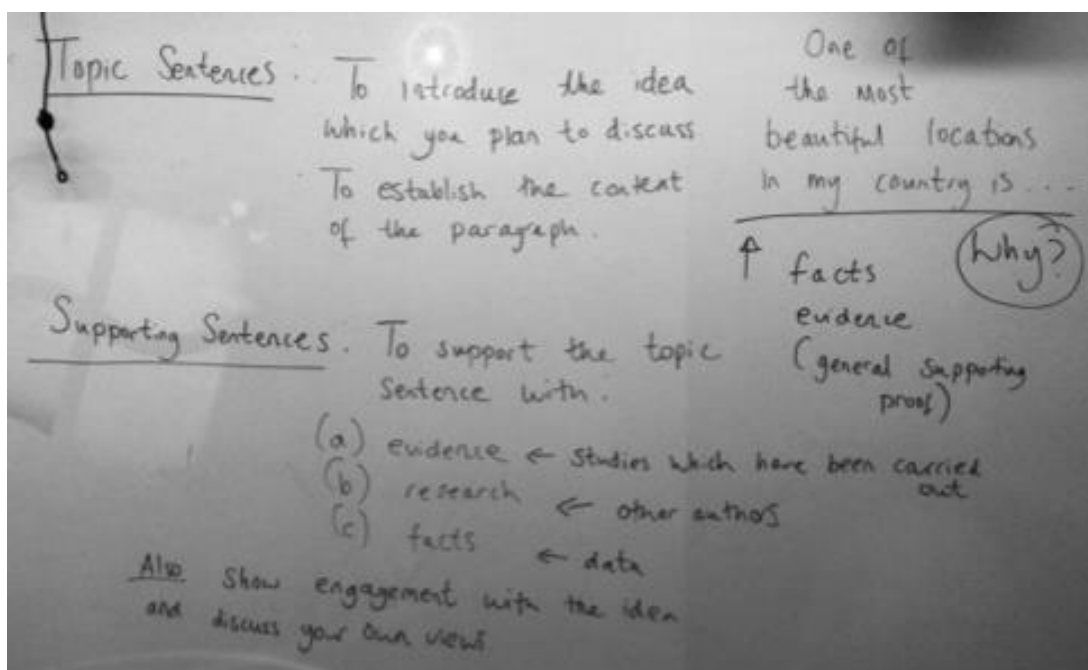 Topic Sentences. To introduce the idea
which you plan to discuss
To establish the content
of the paragraph.
One of
the most
beautiful locations
in my country is ...
↑ facts
evidence
(general supporting
proof)
Why?
Supporting Sentences. To support the topic
sentence with.
(a) evidence ← studies which have been carried
out
(b) research ← other authors
(c) facts ← data
Also Show engagement with the idea
and discuss your own views